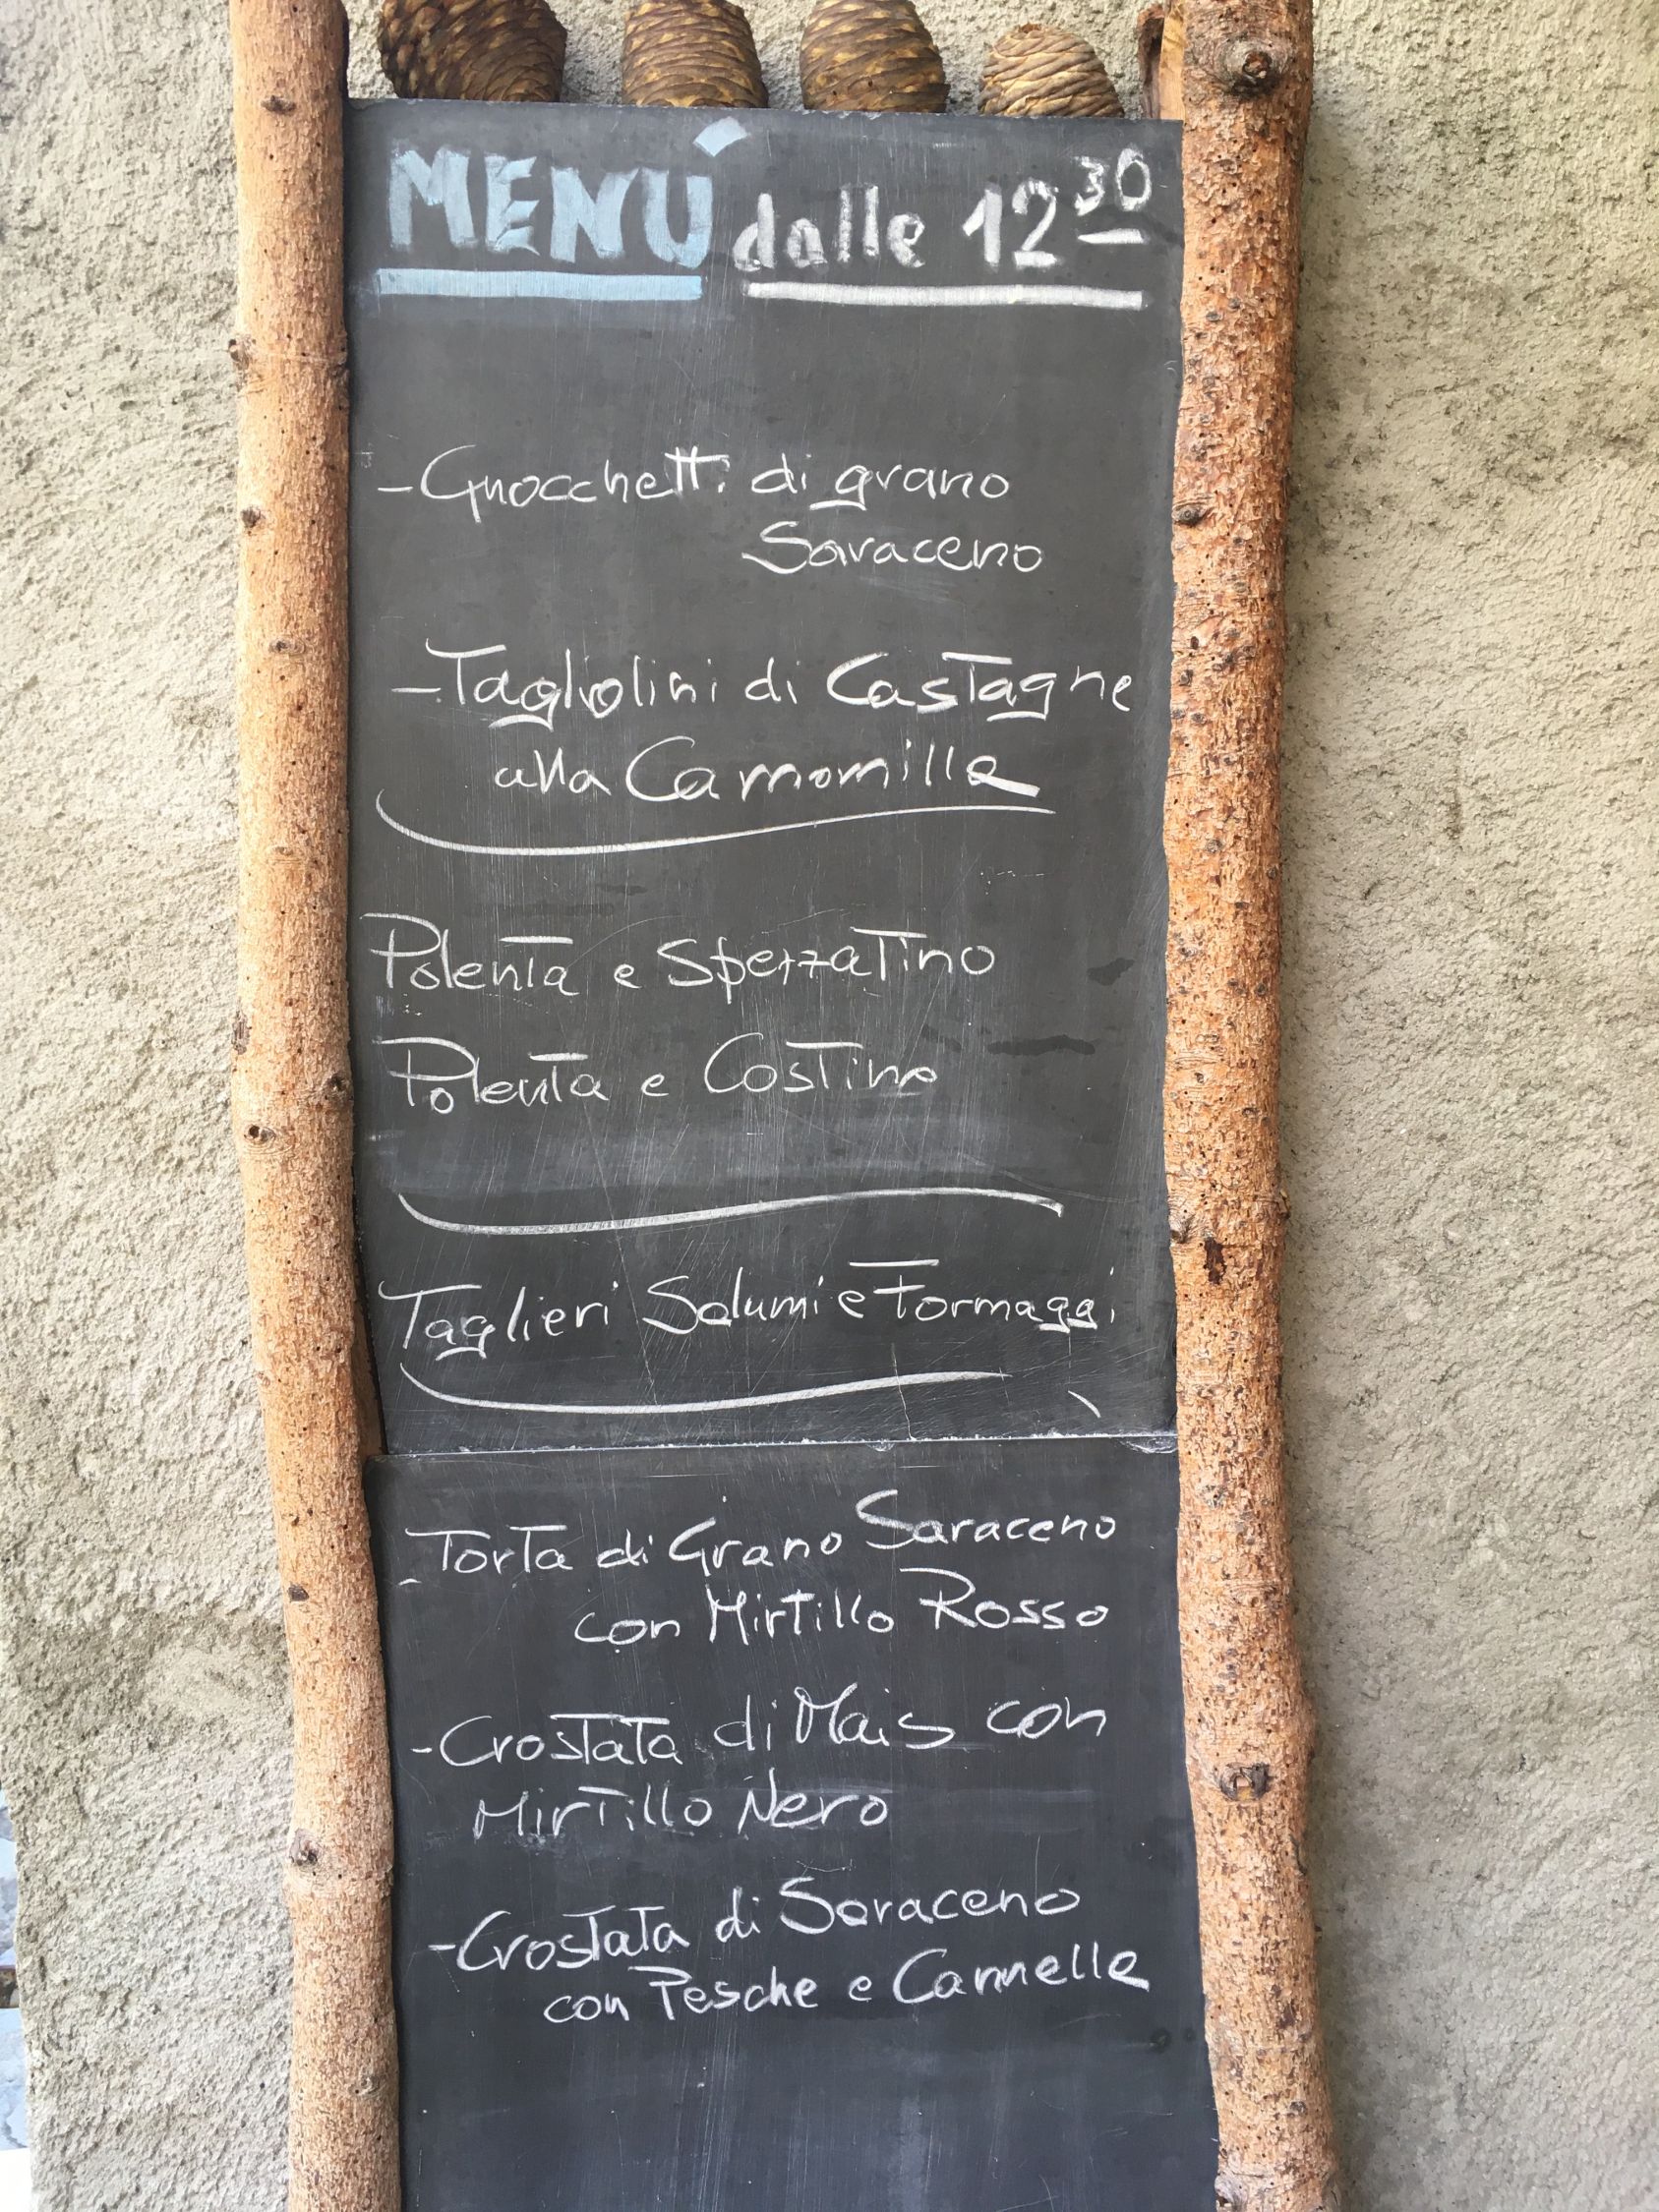 MENÚ dalle 12 30
- Gnocchetti di grano
Saraceno
- Tagliolini di Castagne
alla Camomilla
Polenta e Spezzatino
Polenta e Costine
Taglieri Salumi e Formaggi
- Torta di Grano Saraceno
con Mirtillo Rosso
- Crostata di Mais con
Mirtillo Nero
- Crostata di Saraceno
con Pesche e Cannella